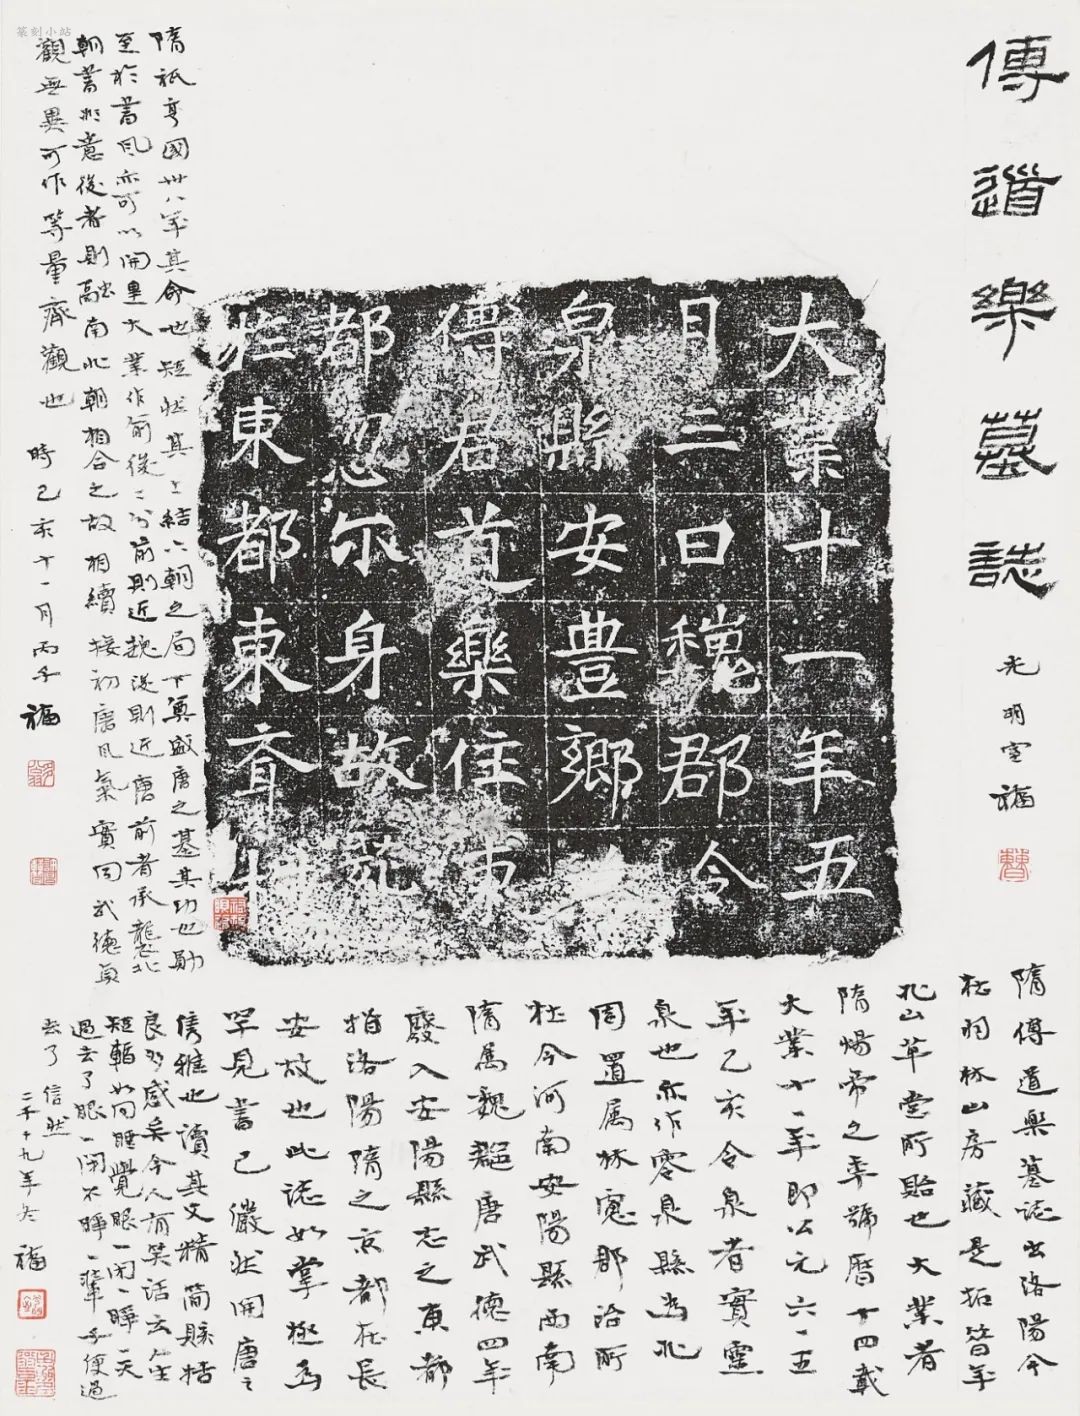 篆刻小站
傅道樂墓誌
光明室 福
大業十一年五
月三日魏郡令
泉縣安豊鄉
傅君道樂住東
都忽尔身故
於東都東斉
隋傅道樂墓誌出洛陽今
在羽林山房藏是拓昔年
北山草堂所貽也大業者
隋煬帝之年號曆十四載
大業十一年即公元六一五
年乙亥令泉者實靈
泉也亦作零泉縣為北
周置属林慮郡治所
在今河南安陽縣西南
隋属魏郡唐武德四年
廢入安陽縣志之東都
指洛陽隋之京都在長
安故也此誌如掌極為
罕見書已儼然開唐之
雋雅也讀其文精簡賅括
良多感矣今人有笑話云人生
短暫如同睡覺眼一閉一睜一天
過去了眼一閉不睜一輩子便過
去了信然
二千十九年冬 福
隋祇享國卅八年其命也短然其上結六朝之局下奠盛唐之基其功也勛
至於書風亦可以開皇大業作前後之分前則近魏後則近唐前者承襲北
朝書形意後者則融南北朝相合之故相續接初唐風氣實同武德貞
觀無異可作等量齊觀也
時己亥十一月丙子 福